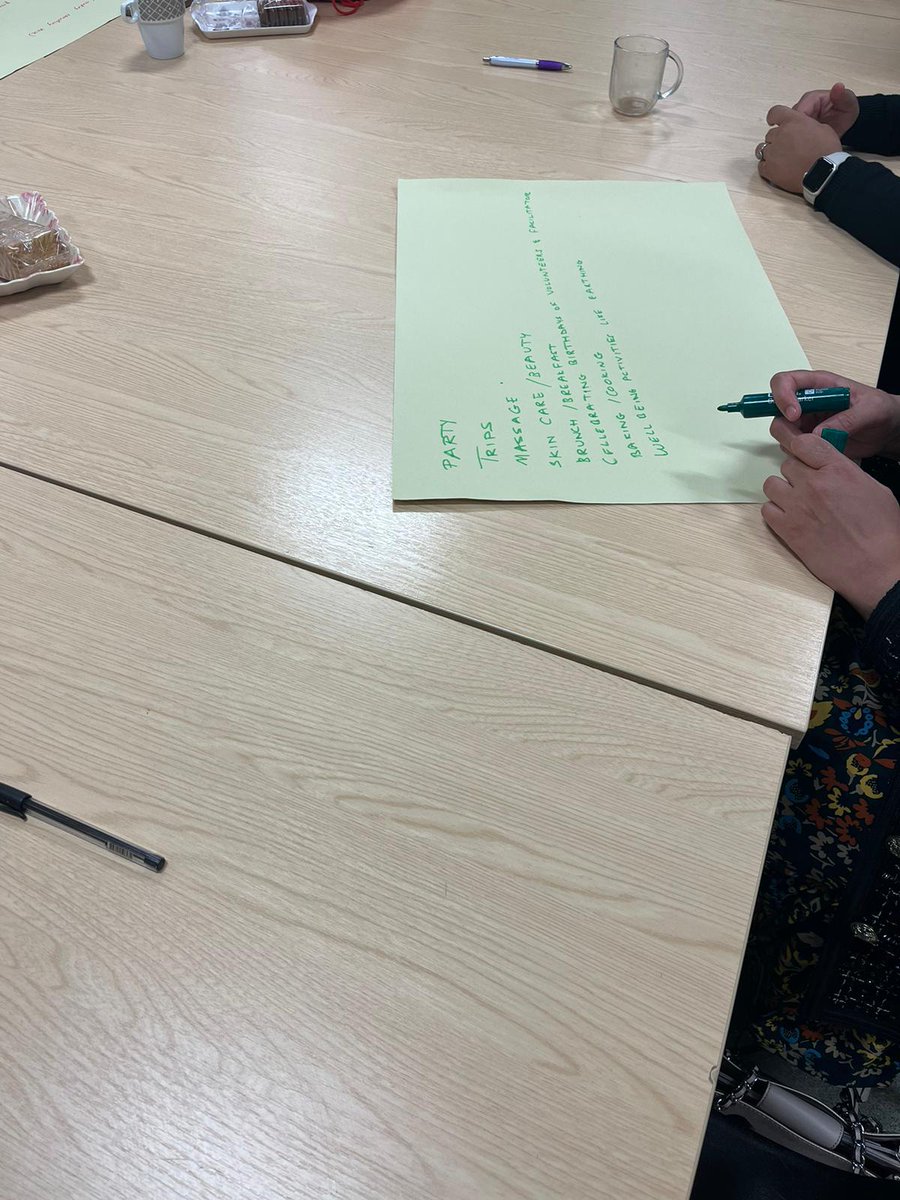 PARTY
TRIPS
MASSAGE
SKIN CARE / BEAUTY
BRUNCH / BREAKFAST
CELEBRATING BIRTHDAYS OF VOLUNTEERS & FACILITATOR
BAKING / COOKING
WELLBEING ACTIVITIES LIKE EARTHING